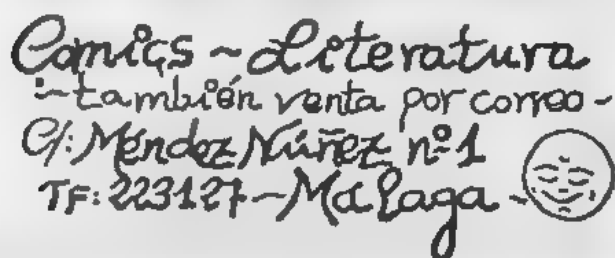 Comics ~ Literatura
-también venta por correo-
C/: Méndez Núñez nº 1
TF: 223127 ~ Málaga -